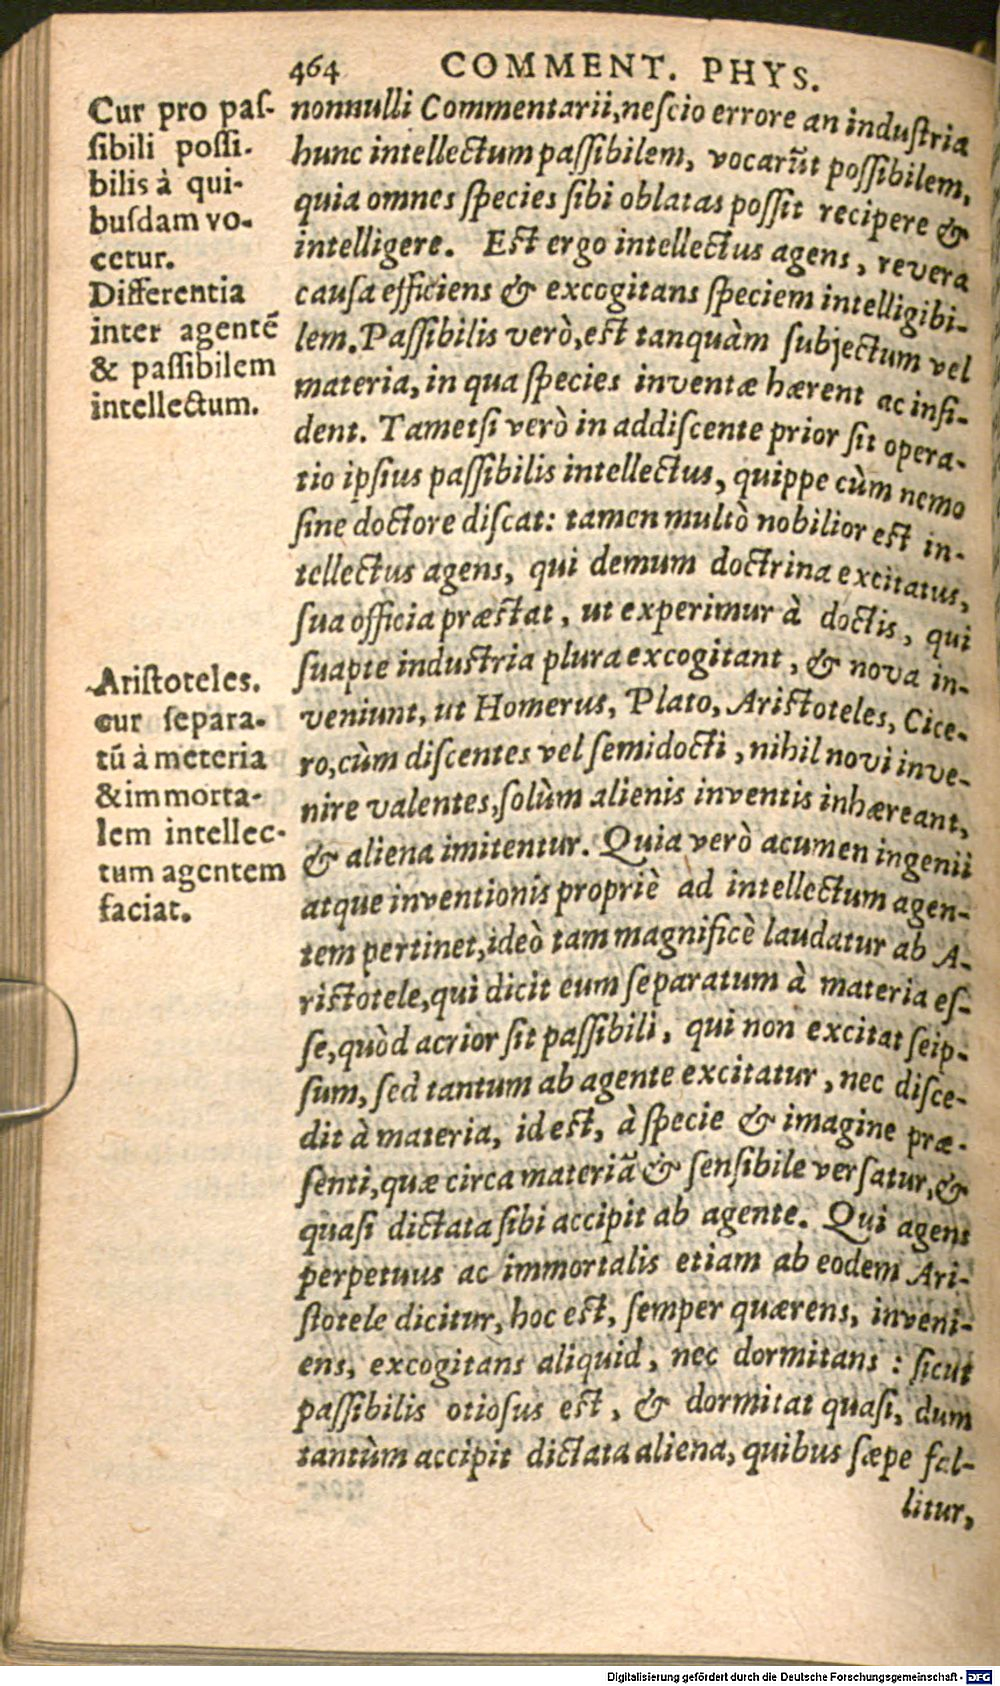 464 COMMENT. PHYS.
Cur pro paſ-
ſibili poſſi-
bilis à qui-
buſdam vo-
cetur.
Differentia
inter agentē
& paſſibilem
intellectum.
Ariſtoteles.
cur ſepara-
tū à meteria
& immorta-
lem intellec-
tum agentem
faciat.
nonnulli Commentarii, neſcio errore an induſtria
hunc intellectum paſſibilem, vocarūt poſſibilem,
quia omnes ſpecies ſibi oblatas poſſit recipere &
intelligere. Eſt ergo intellectus agens, revera
cauſa efficiens & excogitans ſpeciem intelligibi-
lem. Paſſibilis verò, eſt tanquàm ſubjectum vel
materia, in qua ſpecies inventæ hærent ac inſi-
dent. Tametſi verò in addiſcente prior ſit opera-
tio ipſius paſſibilis intellectus, quippe cùm nemo
ſine doctore diſcat: tamen multò nobilior eſt in-
tellectus agens, qui demum doctrina excitatus,
ſua officia præſtat, ut experimur à doctis, qui
ſuapte induſtria plura excogitant, & nova in-
veniunt, ut Homerus, Plato, Ariſtoteles, Cice-
ro, cùm diſcentes vel ſemidocti, nihil novi inve-
nire valentes, ſolùm alienis inventis inhæreant,
& aliena imitentur. Quia verò acumen ingenii
atque inventionis propriè ad intellectum agen-
tem pertinet, ideò tam magnificè laudatur ab A-
riſtotele, qui dicit eum ſeparatum à materia eſ-
ſe, quòd acrior ſit paſſibili, qui non excitat ſeip-
ſum, ſed tantum ab agente excitatur, nec diſce-
dit à materia, id eſt, à ſpecie & imagine præ-
ſenti, quæ circa materiā & ſenſibile verſatur, &
quaſi dictata ſibi accipit ab agente. Qui agens
perpetuus ac immortalis etiam ab eodem Ari-
ſtotele dicitur, hoc eſt, ſemper quærens, inveni-
ens, excogitans aliquid, nec dormitans: ſicut
paſſibilis otioſus eſt, & dormitat quaſi, dum
tantùm accipit dictata aliena, quibus ſæpe fal-
litur,
Digitalisierung gefördert durch die Deutsche Forschungsgemeinschaft - DFG